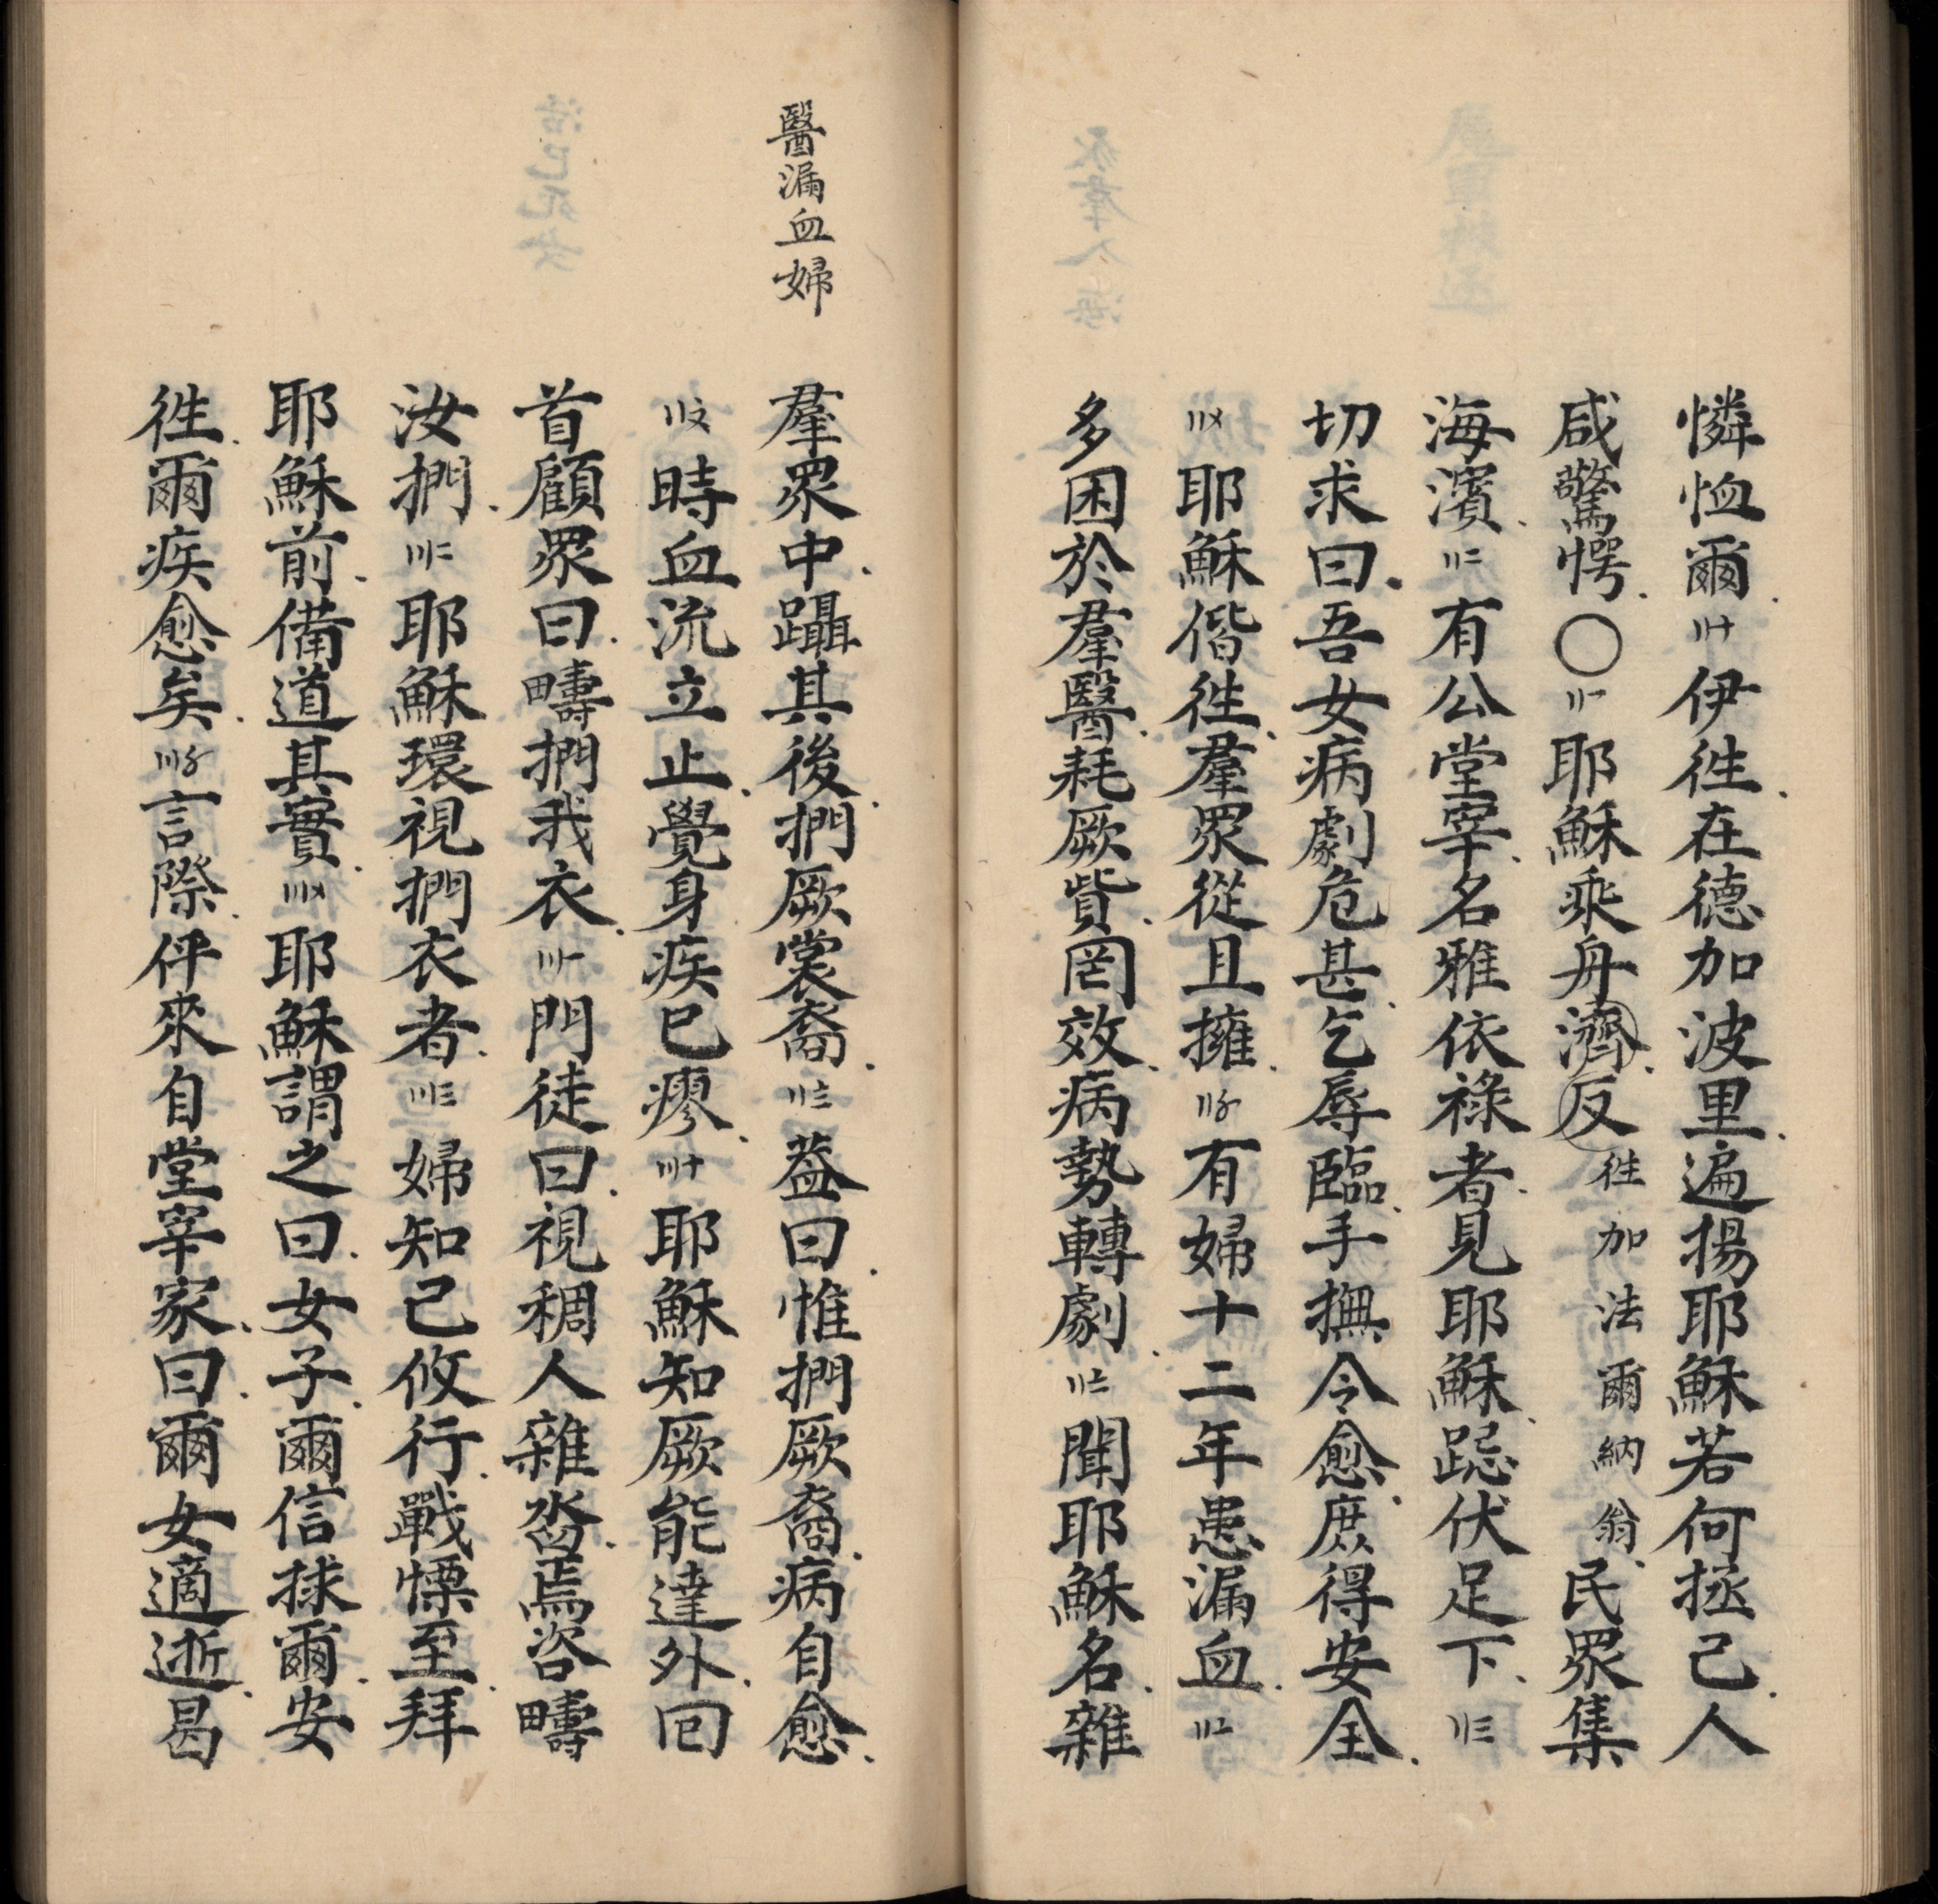 憐恤爾.〢十伊徃.在德加波里.遍揚耶穌若何拯己.人
咸驚愕.〇〢一耶穌乘舟濟.反徃加法爾納翁.民眾集
海濱.〢二有公堂宰.名雅依祿者.見耶穌.跽伏足下.〢三
切求曰.吾女病劇危甚.乞辱臨.手撫令愈.庶得安全.
〢〤耶穌偕徃.羣眾從且擁.〢〥有婦十二年患漏血.〢〦
多困於羣醫.耗厥貲.罔效.病勢轉劇.〢〧聞耶穌名.雜
醫漏血婦
羣眾中.躡其後.捫厥裳裔.〢〨葢曰.惟捫厥裔.病自愈.
〢〩時血流立止.覺身疾已瘳.〣十耶穌知厥能達外.回
首顧眾曰.疇捫我衣.〣一門徒曰.視稠人雜沓.焉咨疇
汝捫.〣二耶穌環視捫衣者.〣三婦知己攸行.戰慄至.拜
耶穌前.備道其實.〣〤耶穌謂之曰.女子.爾信捄爾.安
徃.爾疾愈矣.〣〥言際.伻來自堂宰家.曰.爾女適逝.曷